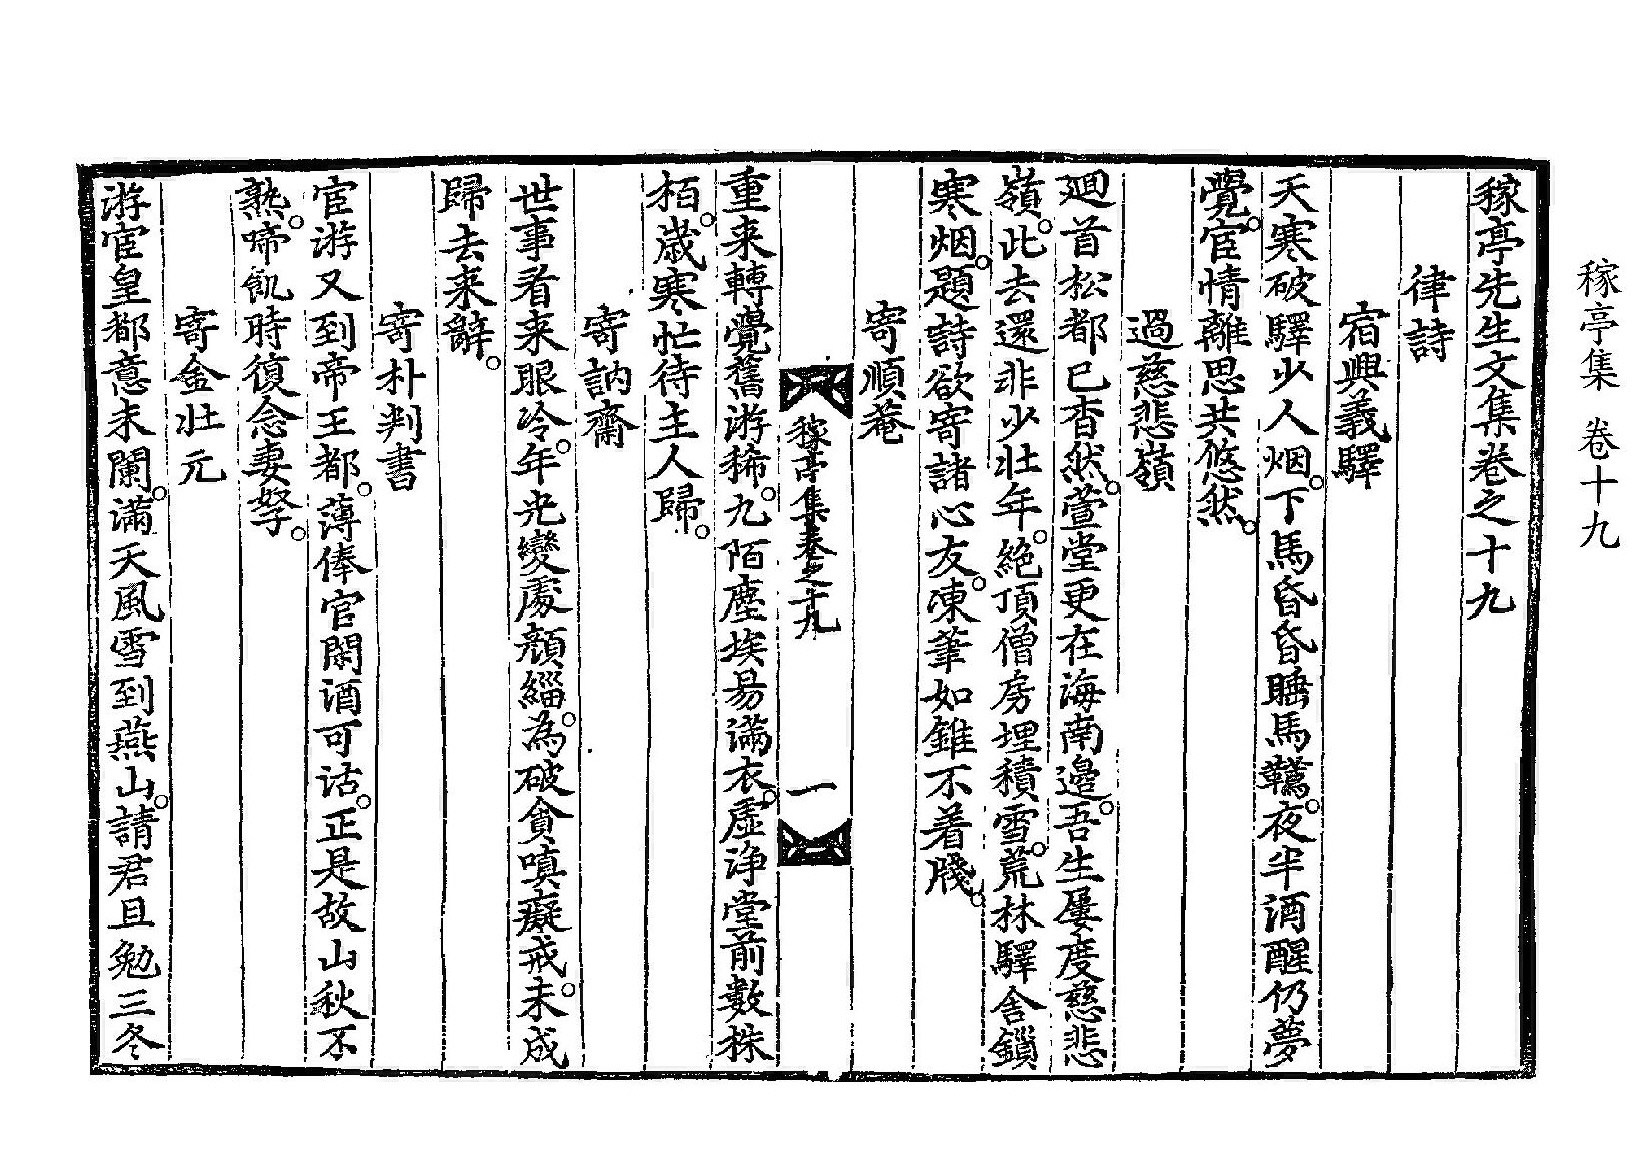 稼亭集 卷十九
稼亭先生文集卷之十九
律詩
宿興義驛
天寒破驛少人烟。下馬昏昏睡馬韉。夜半酒醒仍夢
覺。宦情離思共悠然。
過慈悲嶺
廻首松都已杳然。萱堂更在海南邉。吾生屢度慈悲
嶺。此去還非少壯年。絶頂僧房埋積雪。荒林驛舍鎖
寒烟。題詩欲寄諸心友。凍筆如錐不着牋。
寄順菴
稼亭集卷之十九 一
重来轉覺舊游稀。九陌塵埃易滿衣。虛淨堂前數株
栢。歲寒忙待主人歸。
寄訥齋
世事看来眼冷。年光變處顔緇。為破貪嗔癡戒。未成
歸去来辭。
寄朴判書
宦游又到帝王都。薄俸官閑酒可沽。正是故山秋不
熟。啼飢時復念妻孥。
寄金壯元
游宦皇都意未闌。滿天風雪到燕山。請君且勉三冬